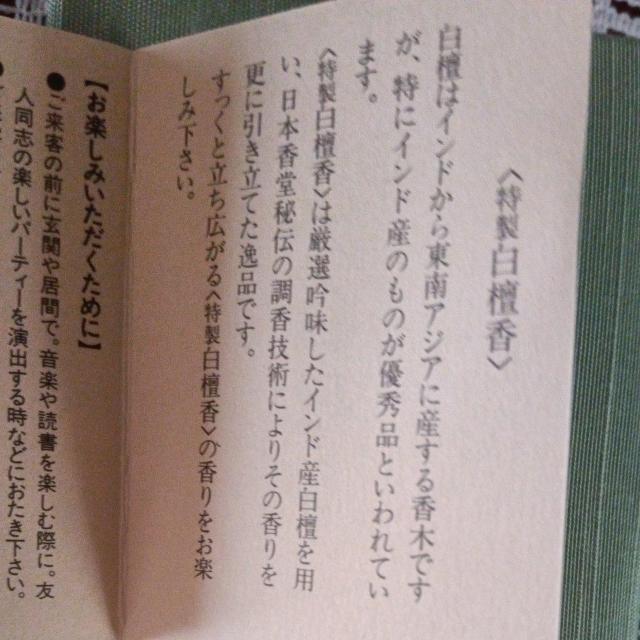 〈特製白檀香〉
白檀はインドから東南アジアに産する香木です
が、特にインド産のものが優秀品といわれてい
ます。
〈特製白檀香〉は厳選吟味したインド産白檀を用
い、日本香堂秘伝の調香技術によりその香りを
更に引き立てた逸品です。
すっくと立ち広がる〈特製白檀香〉の香りをお楽
しみ下さい。
【お楽しみいただくために】
●ご来客の前に玄関や居間で。音楽や読書を楽しむ際に。友
人同志の楽しいパーティーを演出する時などにおたき下さい。